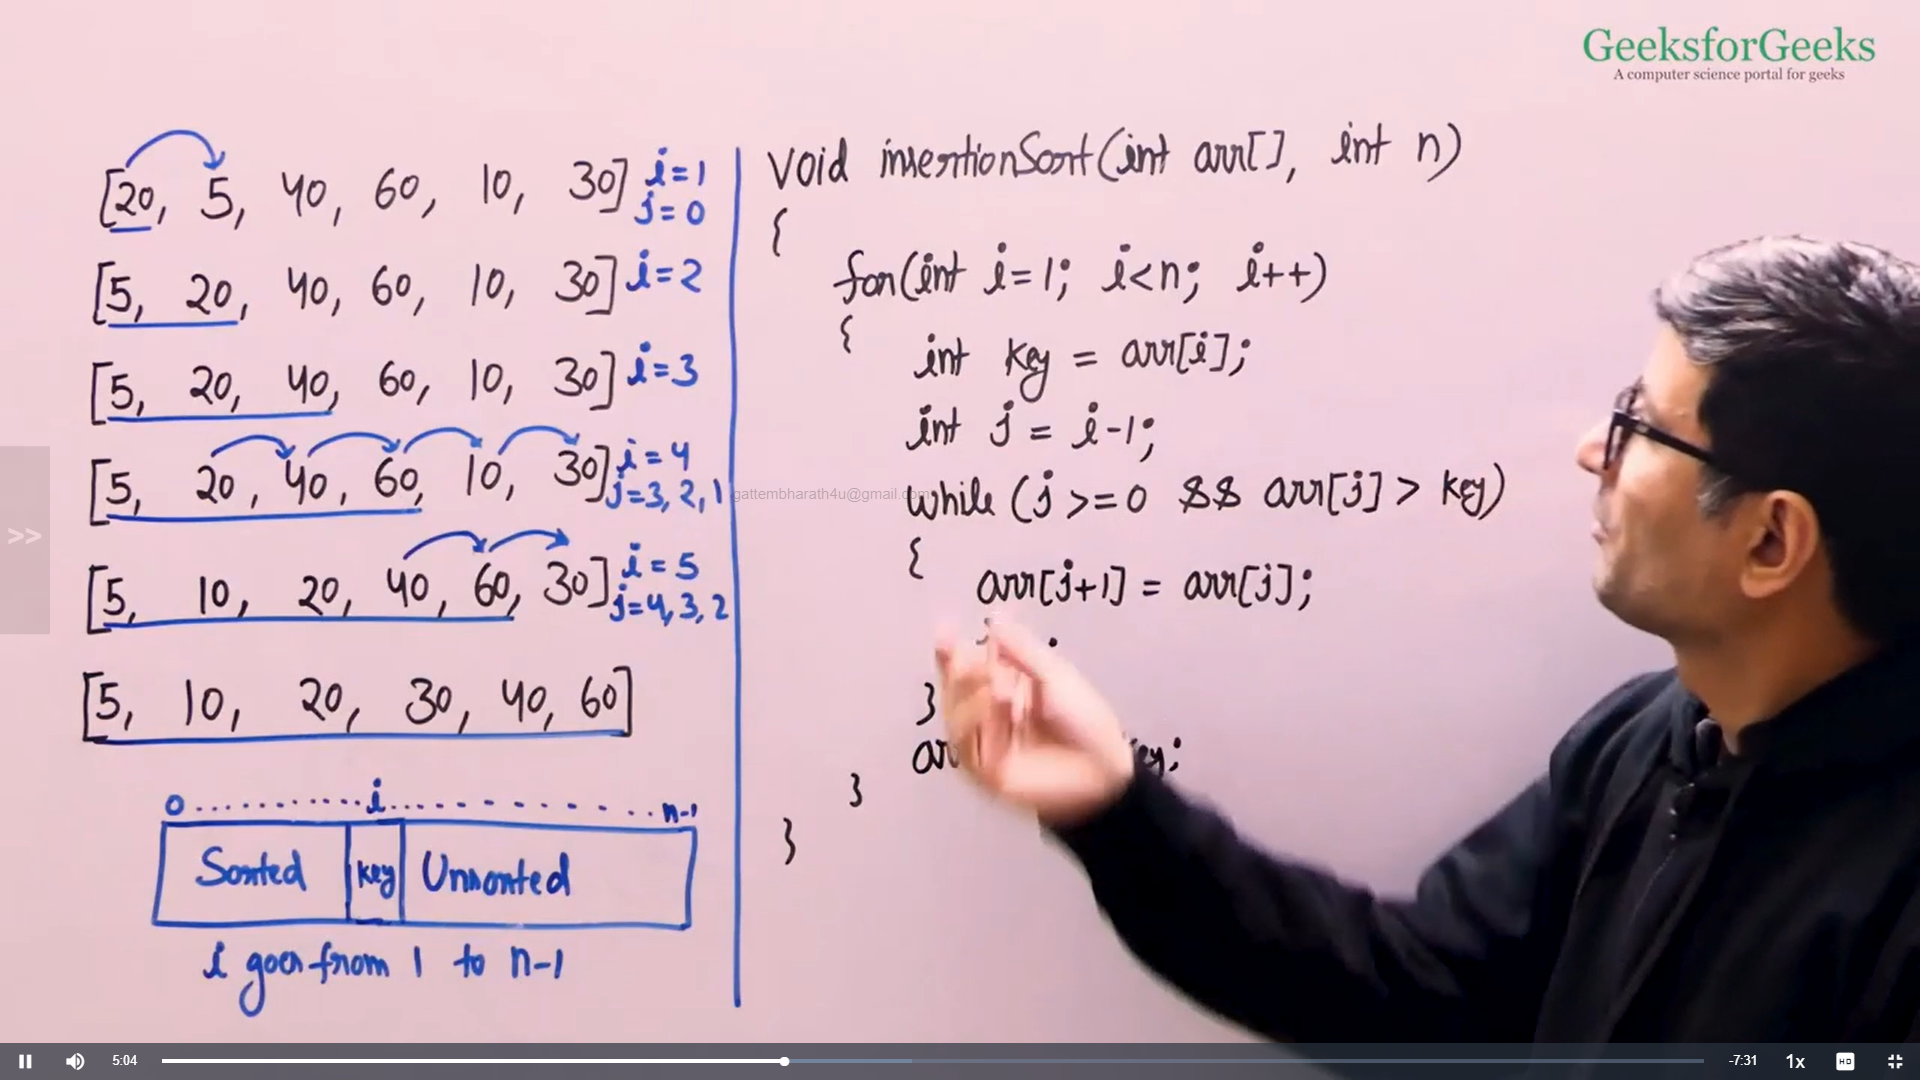 GeeksforGeeks
A computer science portal for geeks
[20, 5, 40, 60, 10, 30] i=1
j=0
[5, 20, 40, 60, 10, 30] i=2
[5, 20, 40, 60, 10, 30] i=3
[5, 20, 40, 60, 10, 30] i=4
j=3, 2, 1
[5, 10, 20, 40, 60, 30] i=5
j=4, 3, 2
[5, 10, 20, 30, 40, 60]
0 .......... i .......... n-1
Sorted key Unsorted
i goes from 1 to n-1
void insertionSort(int arr[], int n)
{
for(int i=1; i<n; i++)
{
int key = arr[i];
int j = i-1;
gattembharath4u@gmail.com
while (j >=0 && arr[j] > key)
{
arr[j+1] = arr[j];
}
}
}
>>
5:04
-7:31
1x
HD